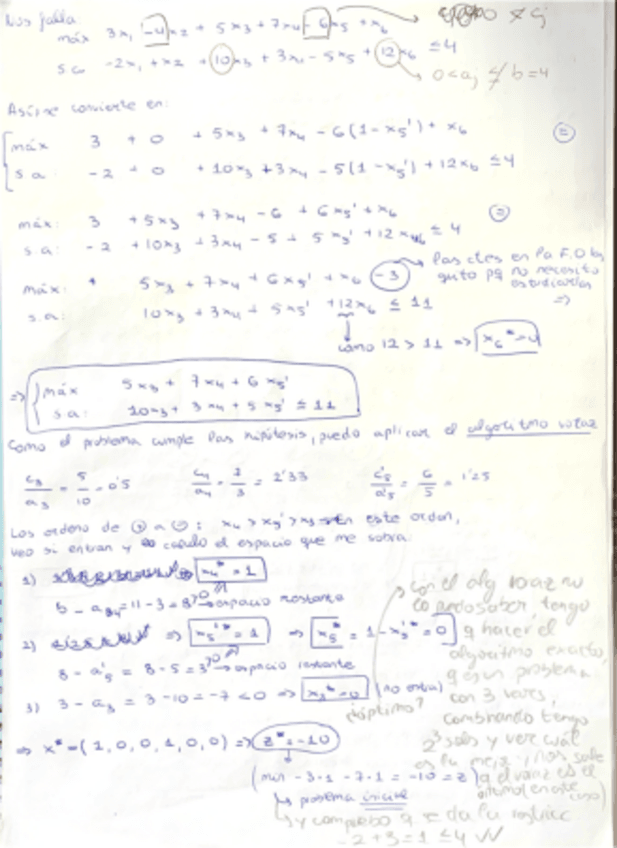 Nos falla
máx 3x₁ -4x₂ + 5x₃ + 7x₄ - 6x₅ + x₆
s.a -2x₁ + x₂ + 10x₃ + 3x₄ - 5x₅ + 12x₆ ≤ 4
Así se convierte en:
máx 3 + 0 + 5x₃ + 7x₄ - 6(1-x₅') + x₆
s.a: -2 + 0 + 10x₃ + 3x₄ - 5(1-x₅') + 12x₆ ≤ 4
máx: 3 + 5x₃ + 7x₄ - 6 + 6x₅' + x₆
s.a: -2 + 10x₃ + 3x₄ - 5 + 5x₅' + 12x₆ ≤ 4
las ctes en la F.O las
quito pq no necesito
estudiarlas
=>
máx: 5x₃ + 7x₄ + 6x₅' + x₆ -3
s.a: 10x₃ + 3x₄ + 5x₅' + 12x₆ ≤ 11
como 12 > 11 => x₆* = 0
=> máx 5x₃ + 7x₄ + 6x₅'
s.a: 10x₃ + 3x₄ + 5x₅' ≤ 11
Como el problema cumple las hipótesis, puedo aplicar el algoritmo voraz
c₃/a₃ = 5/10 = 0'5 c₄/a₄ = 7/3 = 2'33 c'₅/a'₅ = 6/5 = 1'25
Los ordeno de : x₄ > x₅' > x₃ en este orden,
veo si entran y calculo el espacio que me sobra
1) => x₄* = 1
b - a₄ = 11-3 = 8 > 0 espacio restante
2) => x₅'* = 1 => x₅* = 1 - x₅'* = 0
8 - a'₅ = 8-5 = 3 > 0 espacio restante
3) 3 - a₃ = 3-10 = -7 < 0 => x₃* = 0 (no entra)
¿óptimo?
con el alg voraz no
tengo
q hacer el
algoritmo exacto,
q es un problema
con 3 vars,
combinando tengo
2³ sols y ver cuál
es la mejor, nos sale
q el voraz es el
=> x* = (1,0,0,1,0,0) => z* = -10
(mín -3·1 -7·1 = -10 = z)
problema inicial
y compruebo q se da la
-2+3=1 ≤ 4